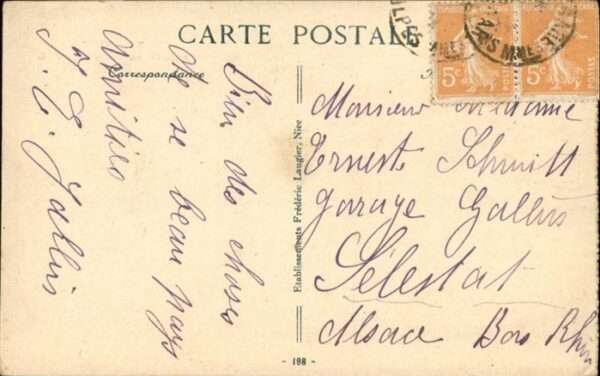 CARTE POSTALE
Correspondance
Bien des choses
de ce beau pays
Amitiés
E. Gallus
Etablissements Frédéric Laugier, Nice
5c
5c
POSTES
Monsieur Madame
Ernest Schmitt
garage Gallus
Sélestat
Alsace Bas Rhin
- 198 -